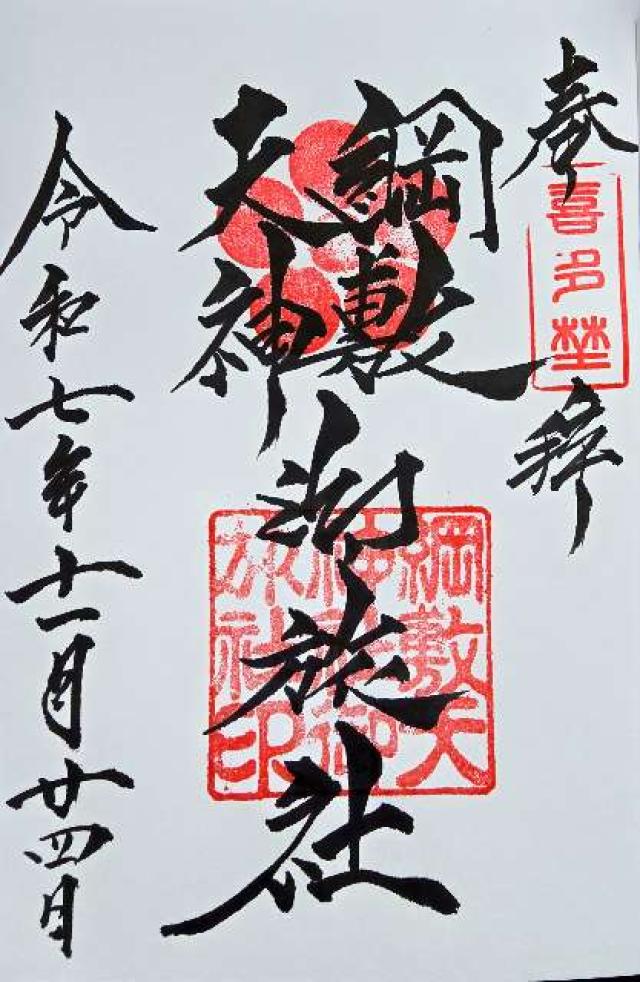 奉拝
喜多埜
綱敷
天神
御旅社
綱敷天
神社御
旅社印
令和七年十一月廿四日